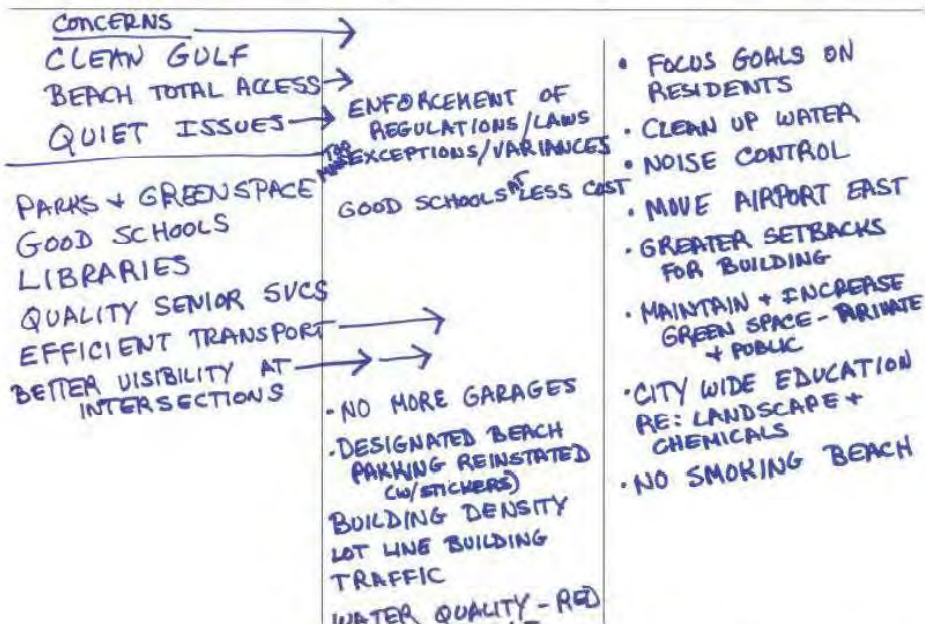 CONCERNS
CLEAN GULF
BEACH TOTAL ACCESS
QUIET ISSUES
PARKS + GREENSPACE
GOOD SCHOOLS
LIBRARIES
QUALITY SENIOR SVCS
EFFICIENT TRANSPORT
BETTER VISIBILITY AT
INTERSECTIONS
ENFORCEMENT OF
REGULATIONS/LAWS
TOO MANY EXCEPTIONS/VARIANCES
GOOD SCHOOLS AT LESS COST
• NO MORE GARAGES
• DESIGNATED BEACH
PARKING REINSTATED
(W/STICKERS)
BUILDING DENSITY
LOT LINE BUILDING
TRAFFIC
WATER QUALITY - RED
• FOCUS GOALS ON
RESIDENTS
• CLEAN UP WATER
• NOISE CONTROL
• MOVE AIRPORT EAST
• GREATER SETBACKS
FOR BUILDING
• MAINTAIN + INCREASE
GREEN SPACE - PRIVATE
+ PUBLIC
• CITY WIDE EDUCATION
RE: LANDSCAPE +
CHEMICALS
• NO SMOKING BEACH